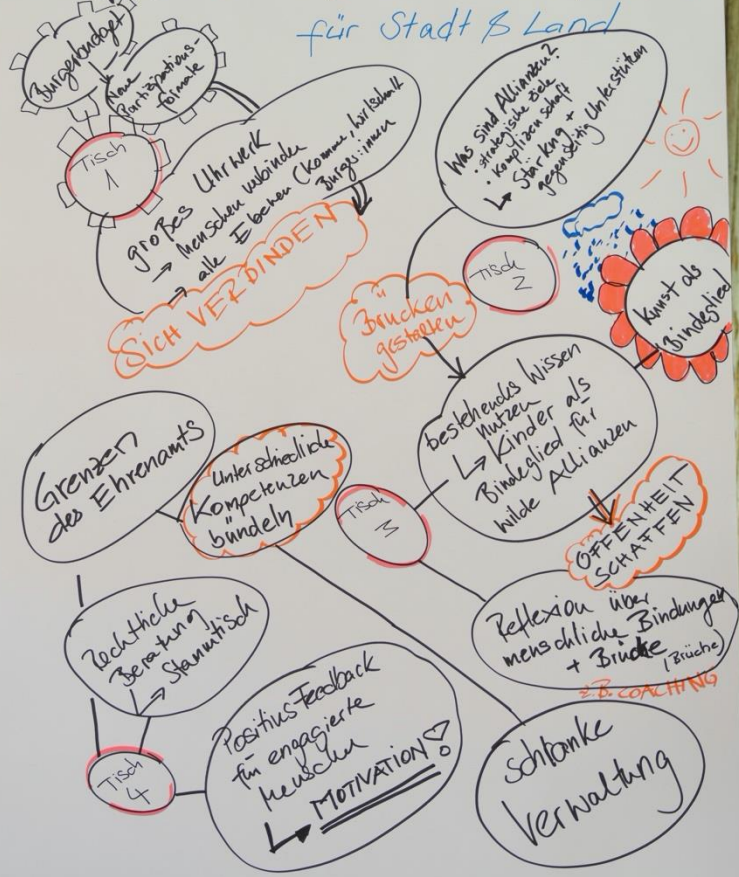 für Stadt & Land
Bürgerbudget
Neue
Partizipations-
formate
Tisch
1
großes Uhrwerk
→ Menschen verbinden
→ alle Ebenen (Kommune, Wirtschaft
Bürger:innen
SICH VERBINDEN
Was sind Allianzen?
· strategische Ziele
· Komplizenschaft
↳ Stärkng +
gegenseitig Unterstützen
Tisch
2
Brücken
gestalten
Kunst als
Bindeglied
bestehendes Wissen
nutzen
↳ Kinder als
Bindeglied für
wilde Allianzen
Tisch
3
OFFENHEIT
SCHAFFEN
Reflexion über
menschliche Bindungen
+ Brücke (Brüche)
z.B. COACHING
Grenzen
des Ehrenamts
Unterschiedliche
Kompetenzen
bündeln
Rechtliche
Beratung
↳ Stammtisch
Tisch
4
Positives Feedback
für engagierte
Menschen
↳ MOTIVATION!
schlanke
Verwaltung